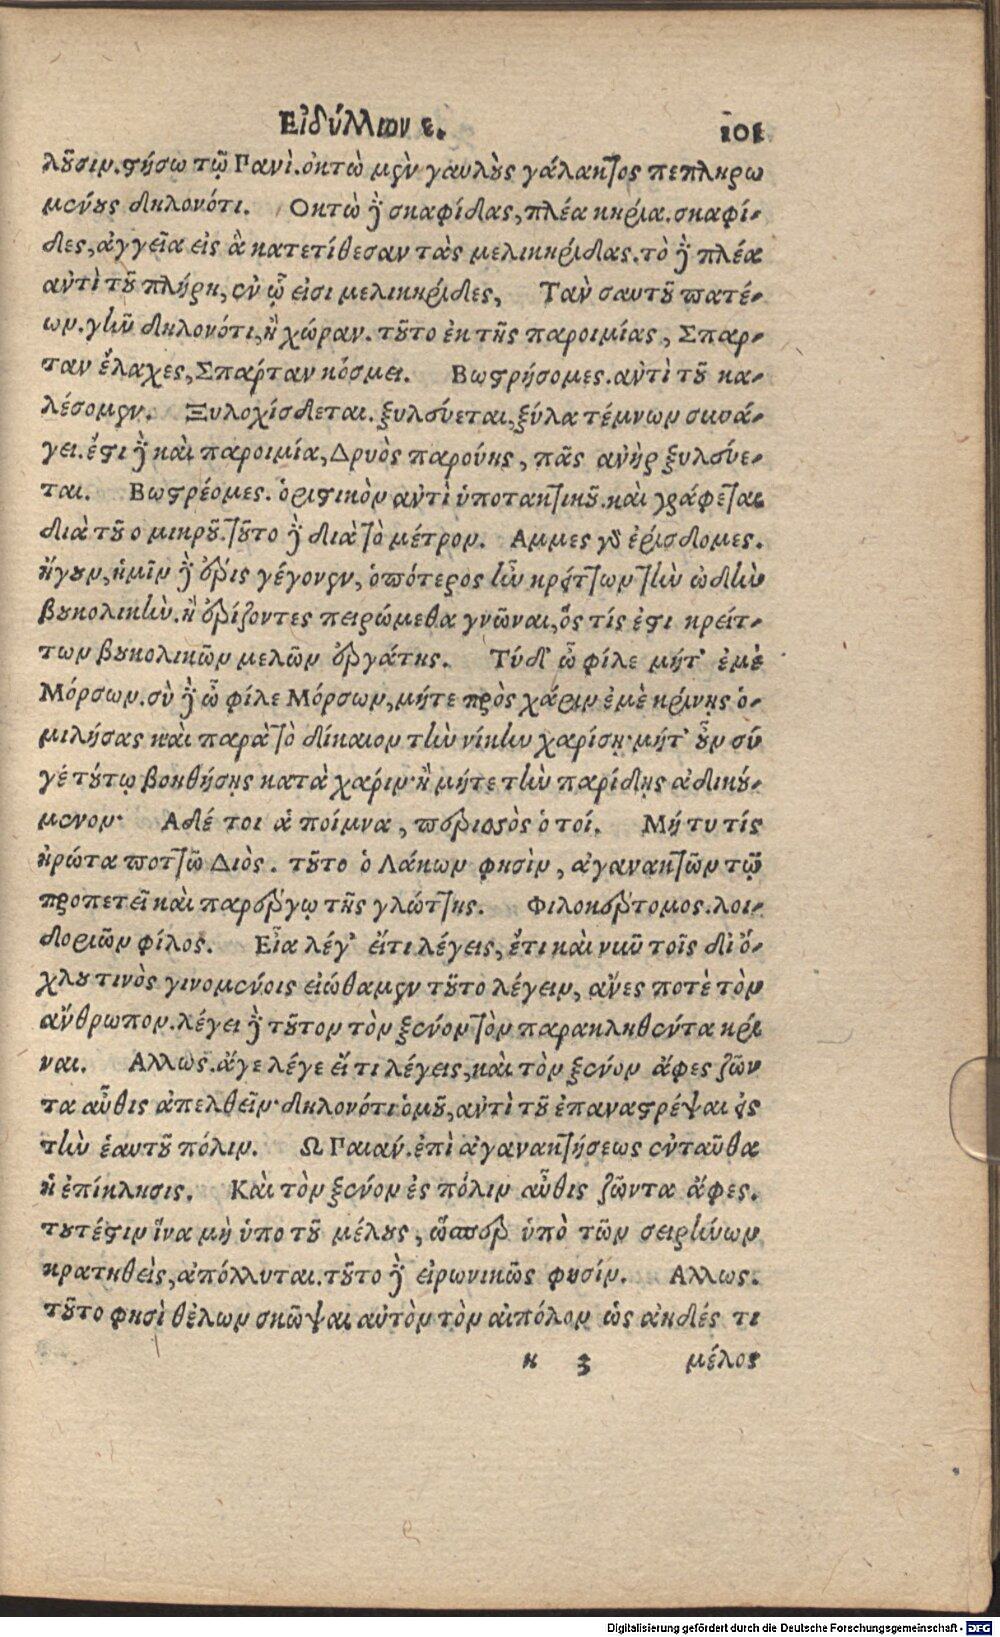 Εἰδύλλιον ε. 101
λοῦσιν. στήσω τῷ Πανὶ. ὀκτὼ μὲν γαυλοὺς γάλακτος πεπληρω
μένους δηλονότι. Οκτὼ δὲ σκαφίδας, πλέα κηρία. σκαφί-
δες, ἀγγεῖα εἰς ἃ κατετίθεσαν τὰς μελικηρίδας. τὸ δὲ πλέα
αὐτὶ τοῦ πλήρη, ἐν ᾧ εἰσι μελικηρίδες, Ταν σαυτοῦ πατέ-
ων. γῆν δηλονότι, ἢ χώραν. τοῦτο ἐκ τῆς παροιμίας, Σπαρ-
ταν ἔλαχες, Σπάρταν κόσμει. Βωστρήσομες. αὐτὶ τοῦ κα-
λέσομεν. Ξυλοχίσδεται. ξυλεύεται, ξύλα τέμνων συνά-
γει. ἔστι δὲ καὶ παροιμία, Δρυὸς παρούσης, πᾶς ἀνὴρ ξυλεύε-
ται. Βωστρέομες. ὁριστικὸν αὐτὶ ὑποτακτικοῦ. καὶ γράφεται
διὰ τοῦ ο μικροῦ. τοῦτο δὲ διὰ τὸ μέτρον. Αμμες γὰρ ἐρίσδομες.
ἤγουν, ἡμῖν δὲ ἔρις γέγονεν, ὁπότερος ἦν κρείττων τὴν ᾠδὴν
βουκολικὴν. ἢ ἐρίζοντες πειρώμεθα γνῶναι, ὅς τίς ἐστι κρείτ-
των βουκολικῶν μελῶν ἐργάτης. Τύδ' ὦ φίλε μήτ' ἐμὲ
Μόρσων. σὺ δὲ ὦ φίλε Μόρσων, μήτε πρὸς χάριν ἐμὲ κρίνῃς ὁ-
μιλήσας καὶ παρὰ τὸ δίκαιον τὴν νίκην χαρίσῃ· μήτ' οὖν σύ
γέ τούτῳ βοηθήσῃς κατὰ χάριν· ἢ μήτε τὴν παρίδῃς ἀδικού-
μενον· Αδέ τοι ἁ ποίμνα, περισσὸς ὁ τοί. Μή τυ τίς
ἠρώτα ποττῶ Διὸς. τοῦτο ὁ Λάκων φησὶν, ἀγανακτῶν τῷ
προπετεῖ καὶ παρέργῳ τῆς γλώττης. Φιλοκέρτομος. λοι-
δοριῶν φίλος. Εἶα λέγ' εἴτι λέγεις, ἔτι καὶ νῦν τοῖς δι' ὄ-
χλου τινὸς γινομένοις εἰώθαμεν τοῦτο λέγειν, ἄνες ποτὲ τὸν
ἄνθρωπον. λέγει δὲ τοῦτον τὸν ξένον τὸν παρακληθέντα κρῖ
ναι. Αλλως. ἄγε λέγε εἴ τι λέγεις, καὶ τὸν ξένον ἄφες ζῶν
τα αὖθις ἀπελθεῖν· δηλονότι ὁμοῦ, αὐτὶ τοῦ ἐπαναστρέψαι εἰς
τὴν ἑαυτοῦ πόλιν. Ω Παιάν. ἐπὶ ἀγανακτήσεως ἐνταῦθα
ἡ ἐπίκλησις. Καὶ τὸν ξένον ἐς πόλιν αὖθις ζῶντα ἄφες.
τουτέστιν ἵνα μὴ ὑπο τοῦ μέλους, ὥσπερ ὑπὸ τῶν σειρήνων
κρατηθεὶς, ἀπόλλυται. τοῦτο δὲ εἰρωνικῶς φησίν. Αλλως.
τοῦτο φησὶ θέλων σκῶψαι αὐτὸν τὸν αἰπόλον ὡς ἀηδές τι
κ 3 μέλος
Digitalisierung gefördert durch die Deutsche Forschungsgemeinschaft - DFG